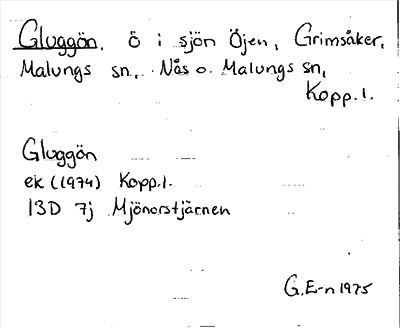 Gluggön. ö i sjön Öjen, Grimsåker,
Malungs sn, Nås o. Malungs sn,
Kopp. l.
Gluggön
ek (1974) Kopp. l.
13D 7j Mjönorstjärnen
G.E-n 1975